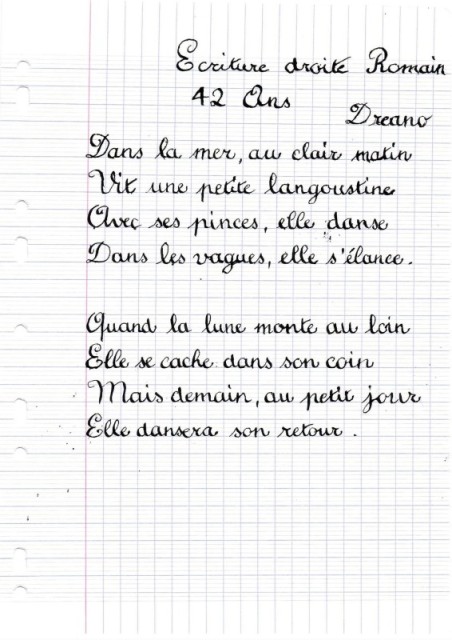 Ecriture droite Romain
42 Ans
Dreano
Dans la mer, au clair matin
Vit une petite langoustine
Avec ses pinces, elle danse
Dans les vagues, elle s'élance.
Quand la lune monte au loin
Elle se cache dans son coin
Mais demain, au petit jour
Elle dansera son retour.